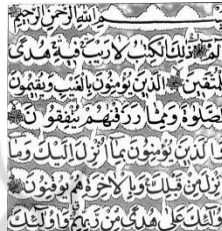 بِسْمِ اللهِ الرَّحْمٰنِ الرَّحِيْمِ
ذٰلِكَ الْكِتٰبُ لَا رَيْبَ فِيْهِ هُدًى
لِّلْمُتَّقِيْنَ الَّذِيْنَ يُؤْمِنُوْنَ بِالْغَيْبِ وَيُقِيْمُوْنَ
الصَّلٰوةَ وَمِمَّا رَزَقْنٰهُمْ يُنْفِقُوْنَ
وَالَّذِيْنَ يُؤْمِنُوْنَ بِمَا اُنْزِلَ اِلَيْكَ وَمَا
اُنْزِلَ مِنْ قَبْلِكَ وَبِالْاٰخِرَةِ هُمْ يُوْقِنُوْنَ
اُولٰٓئِكَ عَلٰى هُدًى مِّنْ رَّبِّهِمْ وَاُولٰٓئِكَ